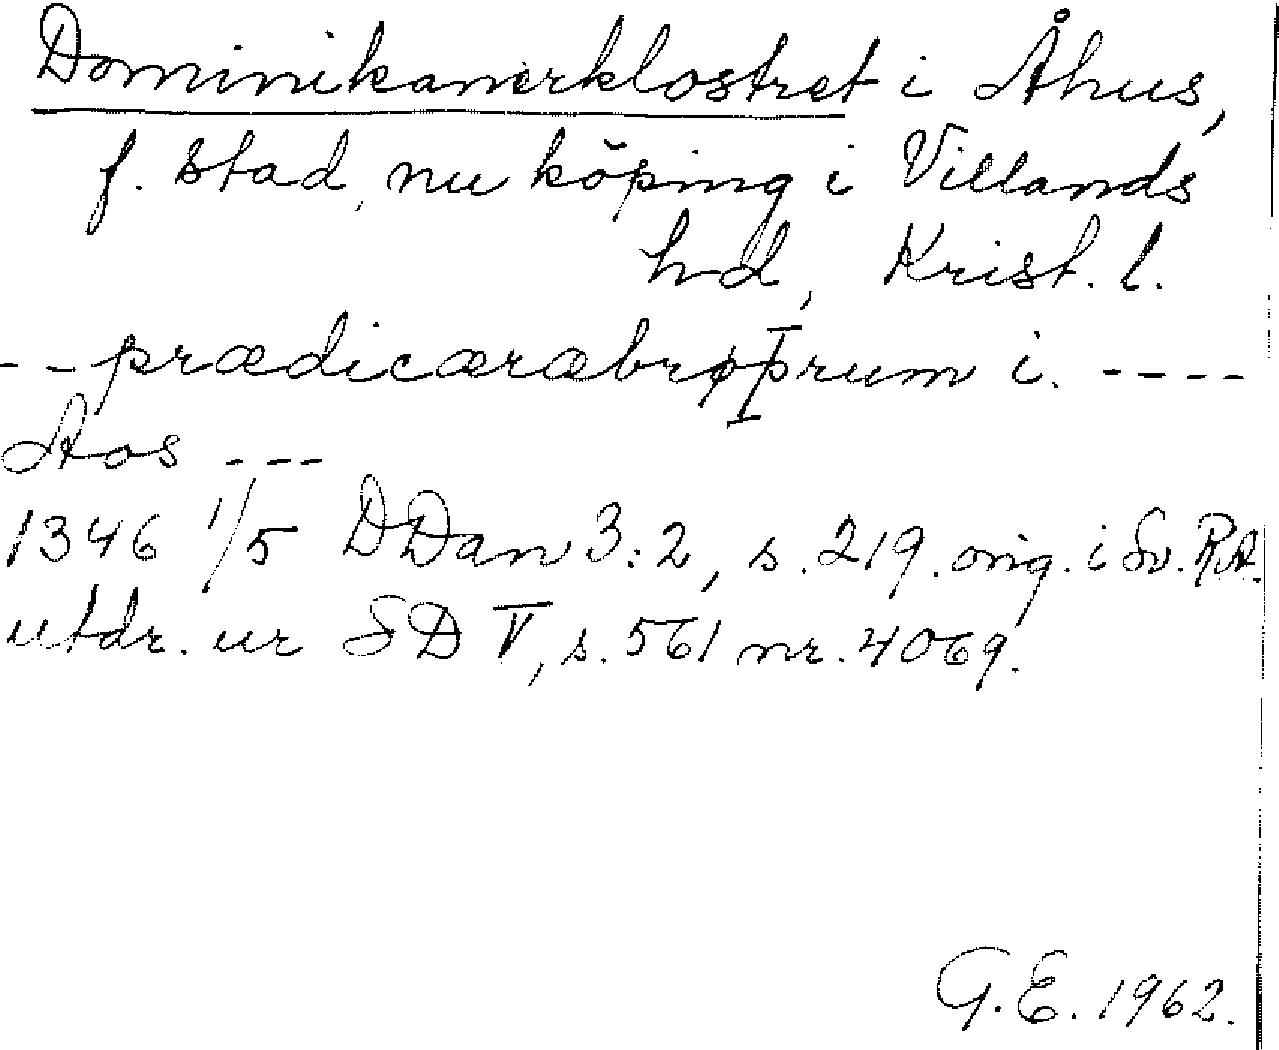 Dominikanerklostret i Åhus,
f. stad, nu köping i Villands
hd, Krist. l.
-- prædicæræbrøþrum i. ----
Aos ---
1346 1/5 DDan 3:2, s. 219. orig. i Sv. RA.
utdr. ur SD V, s. 561 nr. 4069.
G.E. 1962.